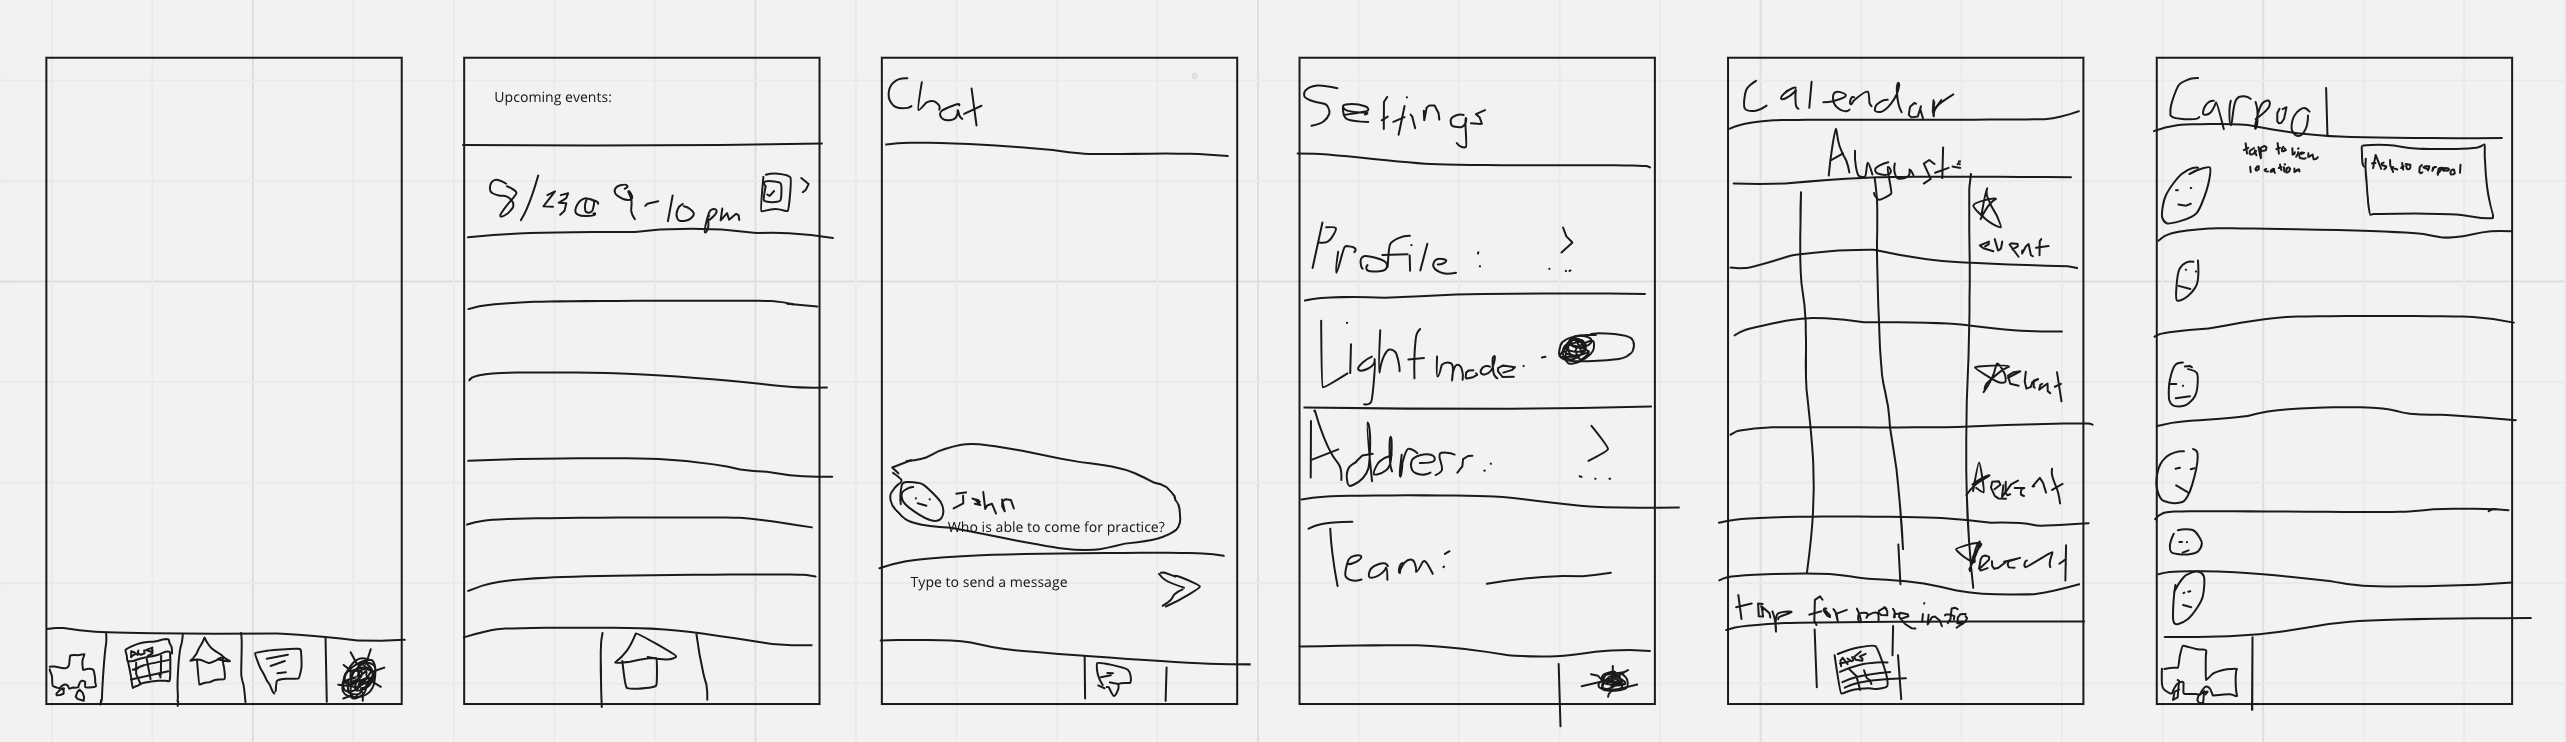 AUG
Upcoming events:
8/23 @ 9-10pm
Chat
John
Who is able to come for practice?
Type to send a message
Settings
Profile:
Light mode:
Address:
Team:
Calendar
August:
event
event
event
event
tap for more info
AUG
Carpool
tap to view
location
Ask to carpool